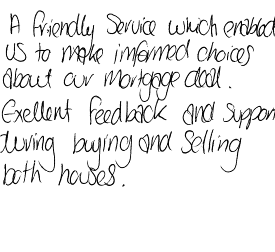 A friendly Service which enabled
us to make informed choices
about our mortgage deal.
Exellent feedback and suppor
during buying and selling
both houses.